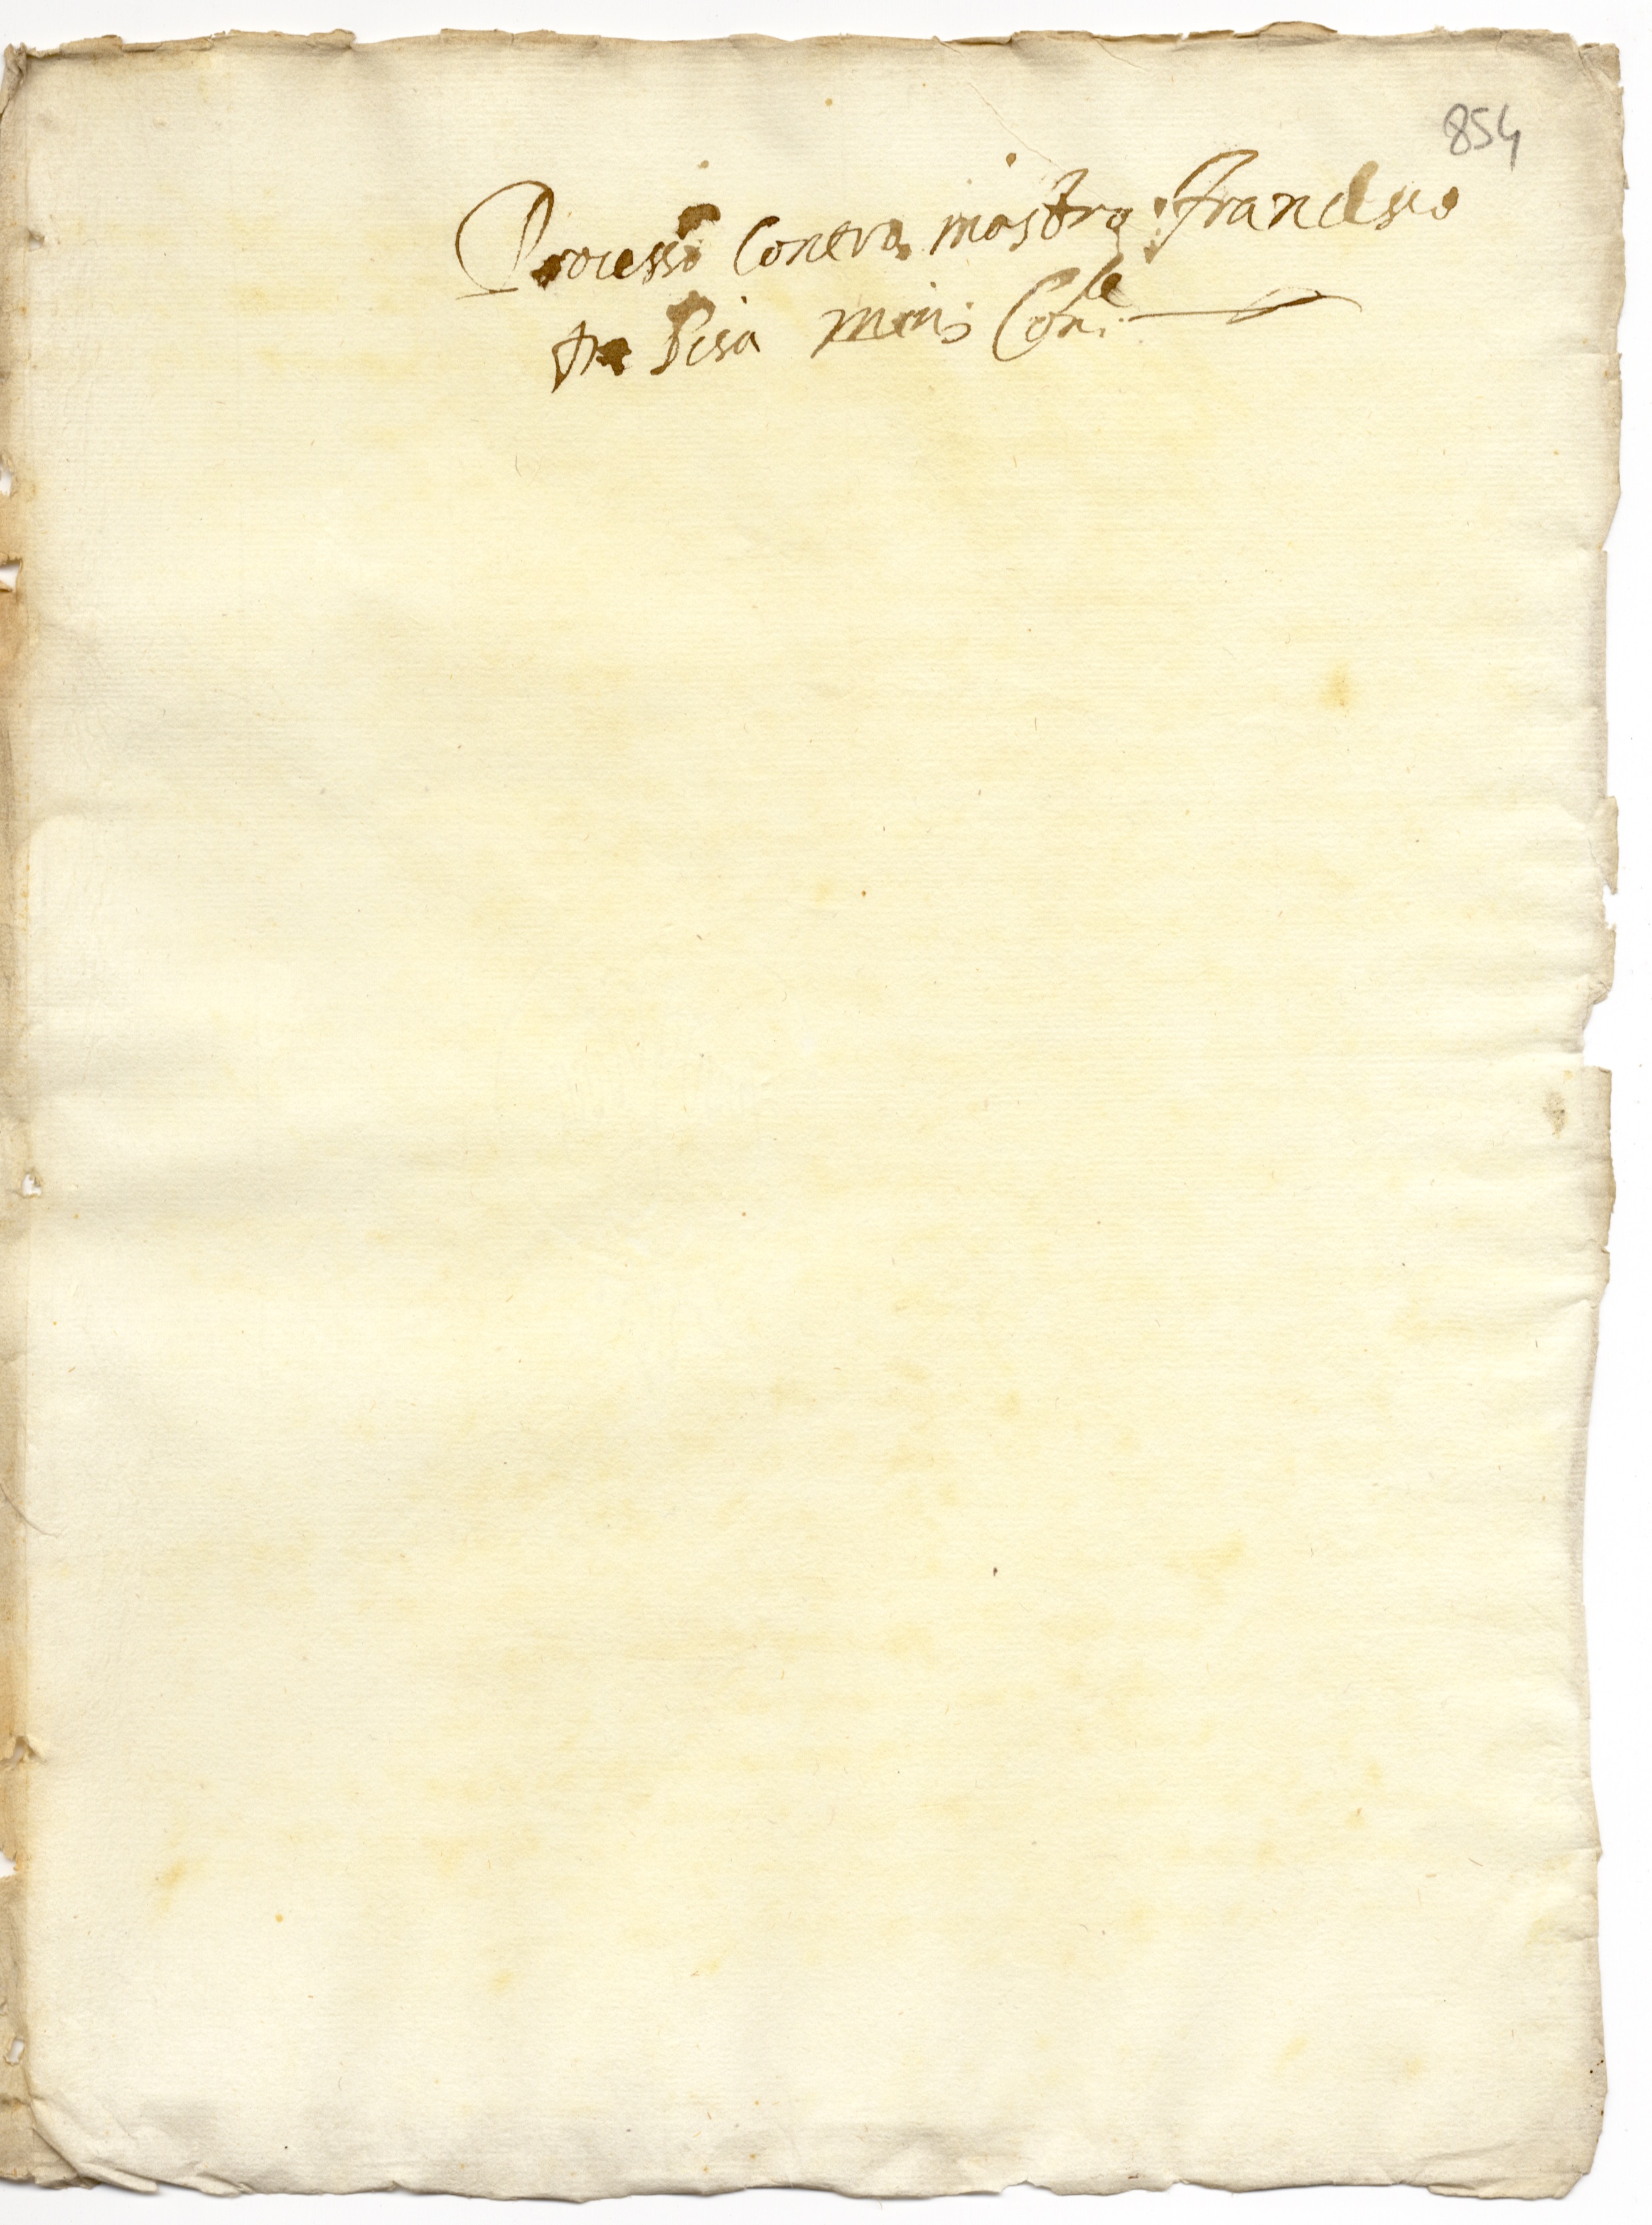 854
Processo Contra mastro francesco
da Pisa Min: Con:le